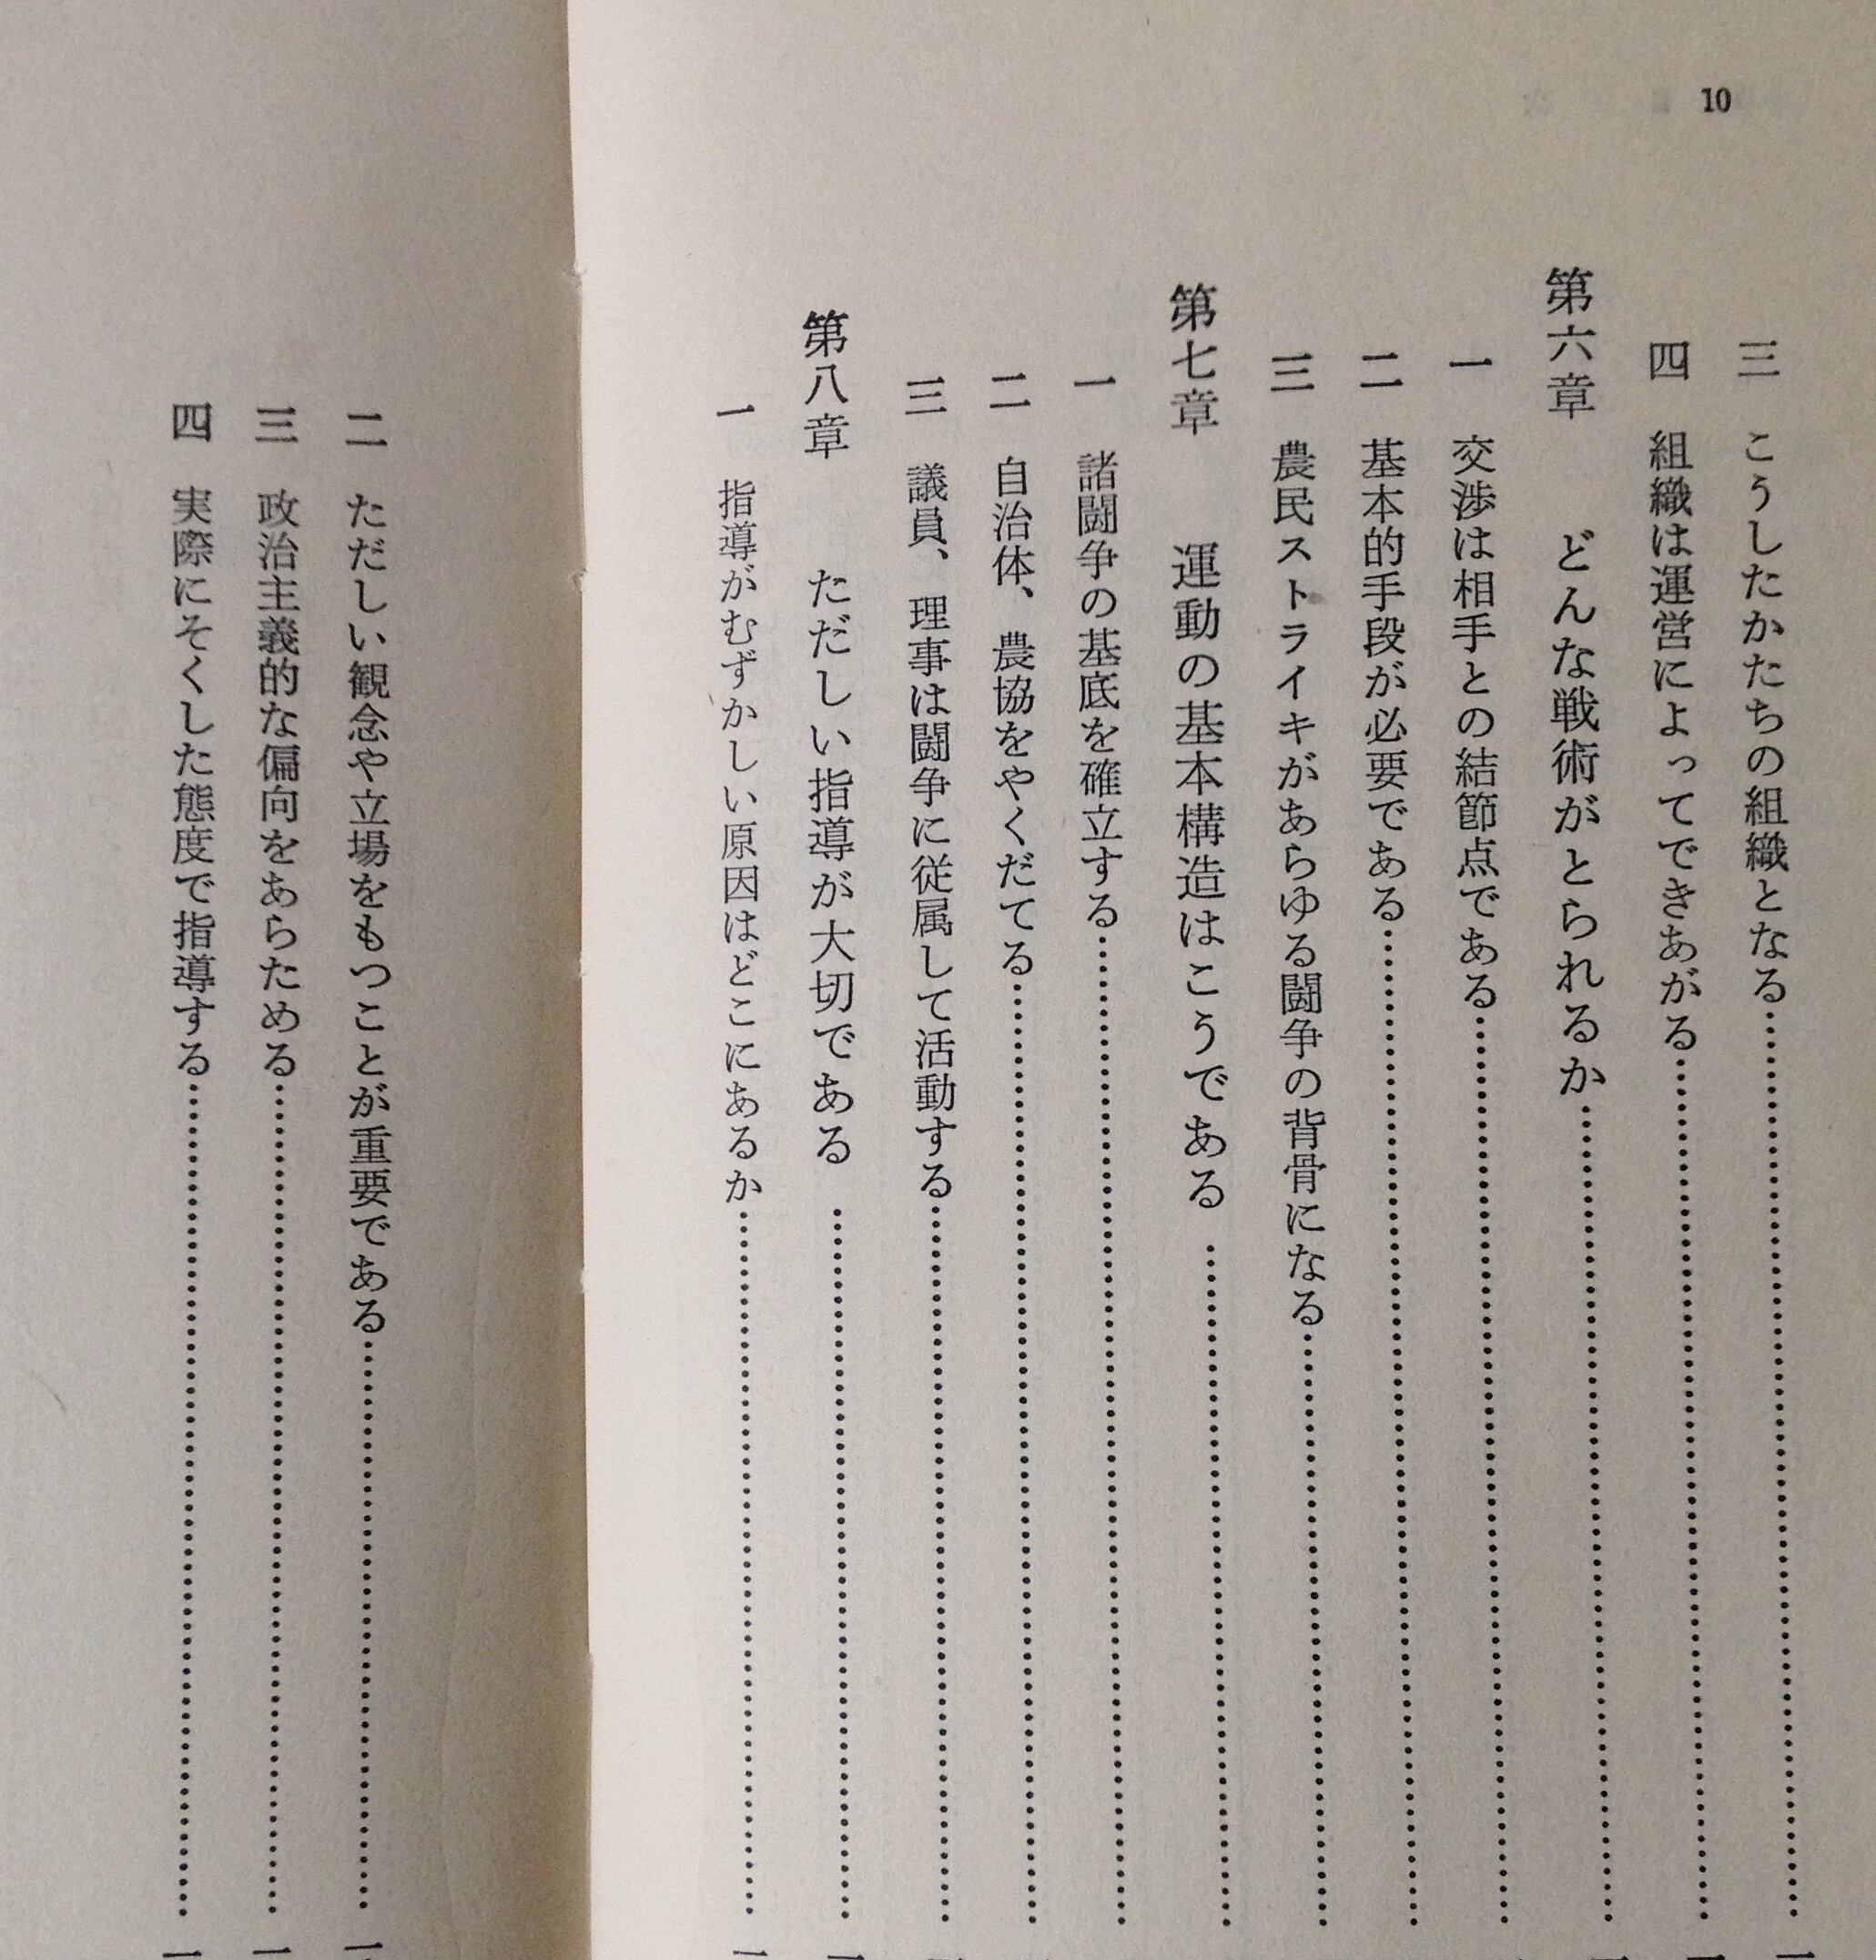 10
三 こうしたかたちの組織となる…………
四 組織は運営によってできあがる…………
第六章 どんな戦術がとられるか…………
一 交渉は相手との結節点である…………
二 基本的手段が必要である…………
三 農民ストライキがあらゆる闘争の背骨になる…………
第七章 運動の基本構造はこうである…………
一 諸闘争の基底を確立する…………
二 自治体、農協をやくだてる…………
三 議員、理事は闘争に従属して活動する…………
第八章 ただしい指導が大切である…………
一 指導がむずかしい原因はどこにあるか…………
二 ただしい観念や立場をもつことが重要である…………
三 政治主義的な偏向をあらためる…………
四 実際にそくした態度で指導する…………